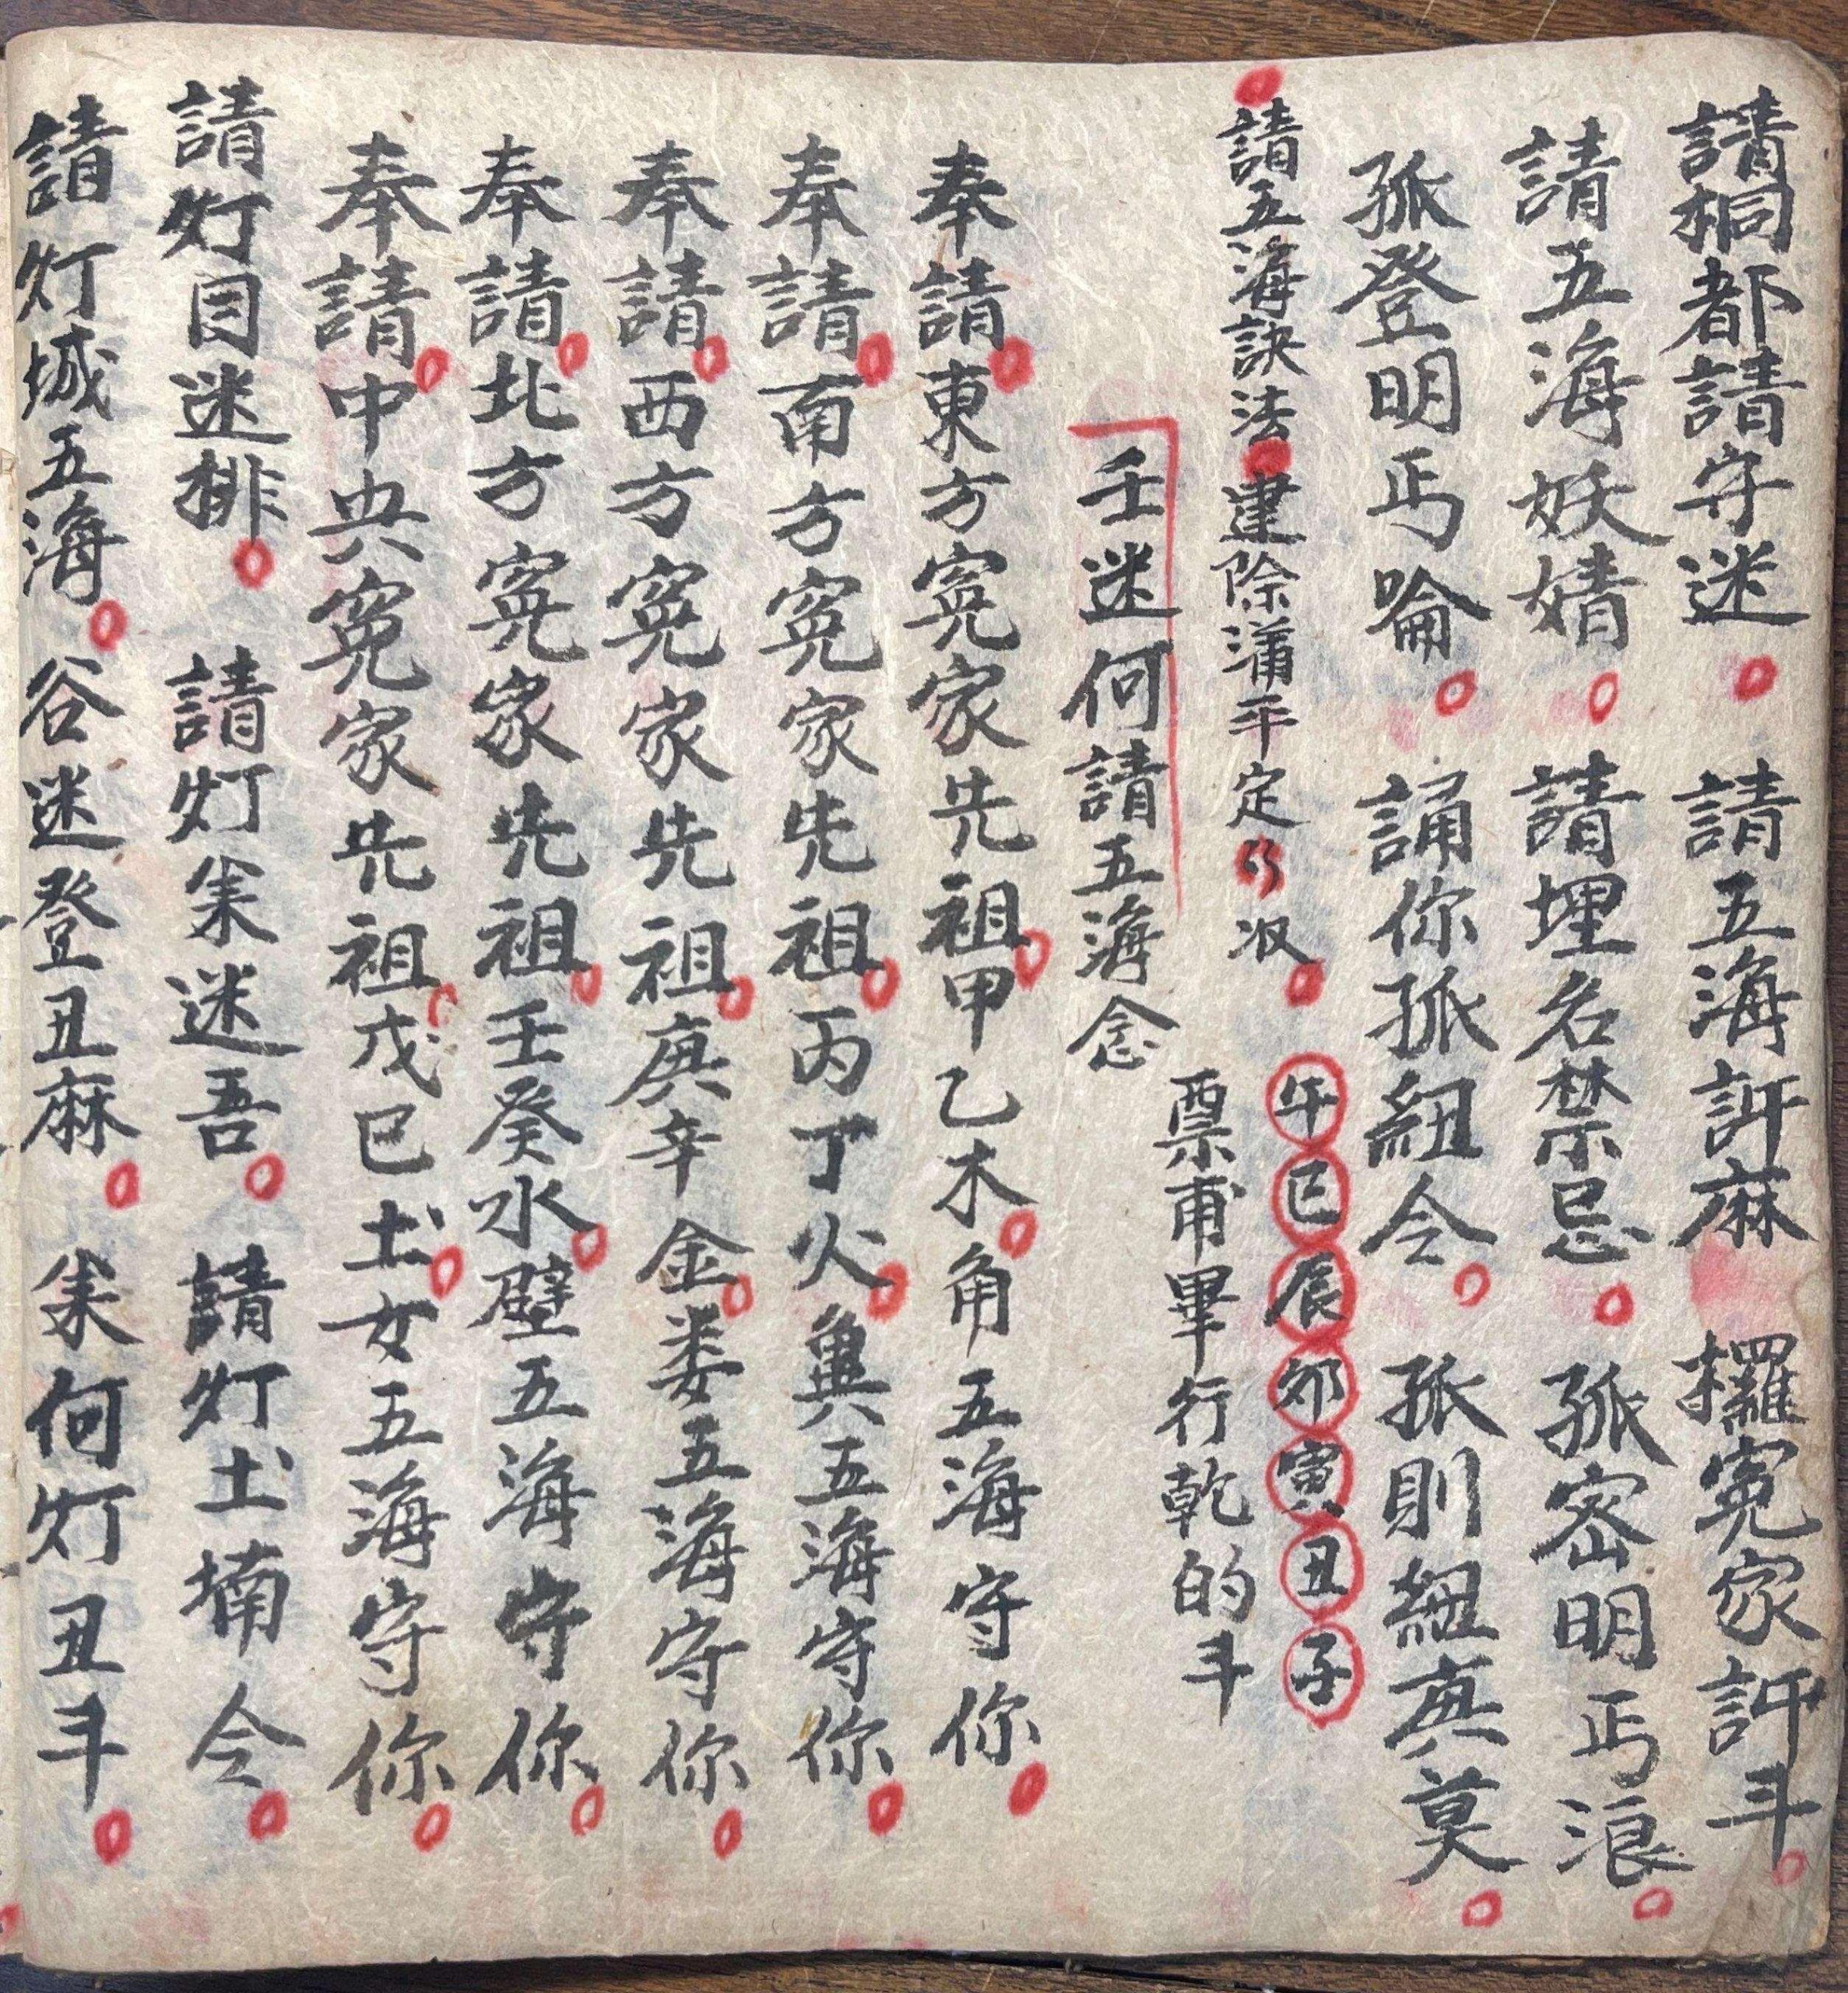 請桐都請守迷 請五海訝麻 㩴寃家許斗
請五海妖婧 請埋名禁忌 孤密明丐浪
孤登明丐喻 誦你孤紐令 孤則紐真莫
請五海訣法 建除蒲平定 收
午巳辰卯寅丑子
票甫畢行乾的斗
壬迷何請五海念
奉請東方寃家先祖甲乙木角五海守你
奉請南方寃家先祖丙丁火鬼五海守你
奉請西方寃家先祖庚辛金娄五海守你
奉請北方寃家先祖壬癸水壁五海守你
奉請中央寃家先祖戊巳土女五海守你
請灯目迷排 請灯朱迷吾 請灯土㙮令
請灯城五海 谷迷登丑麻 朱何灯丑斗